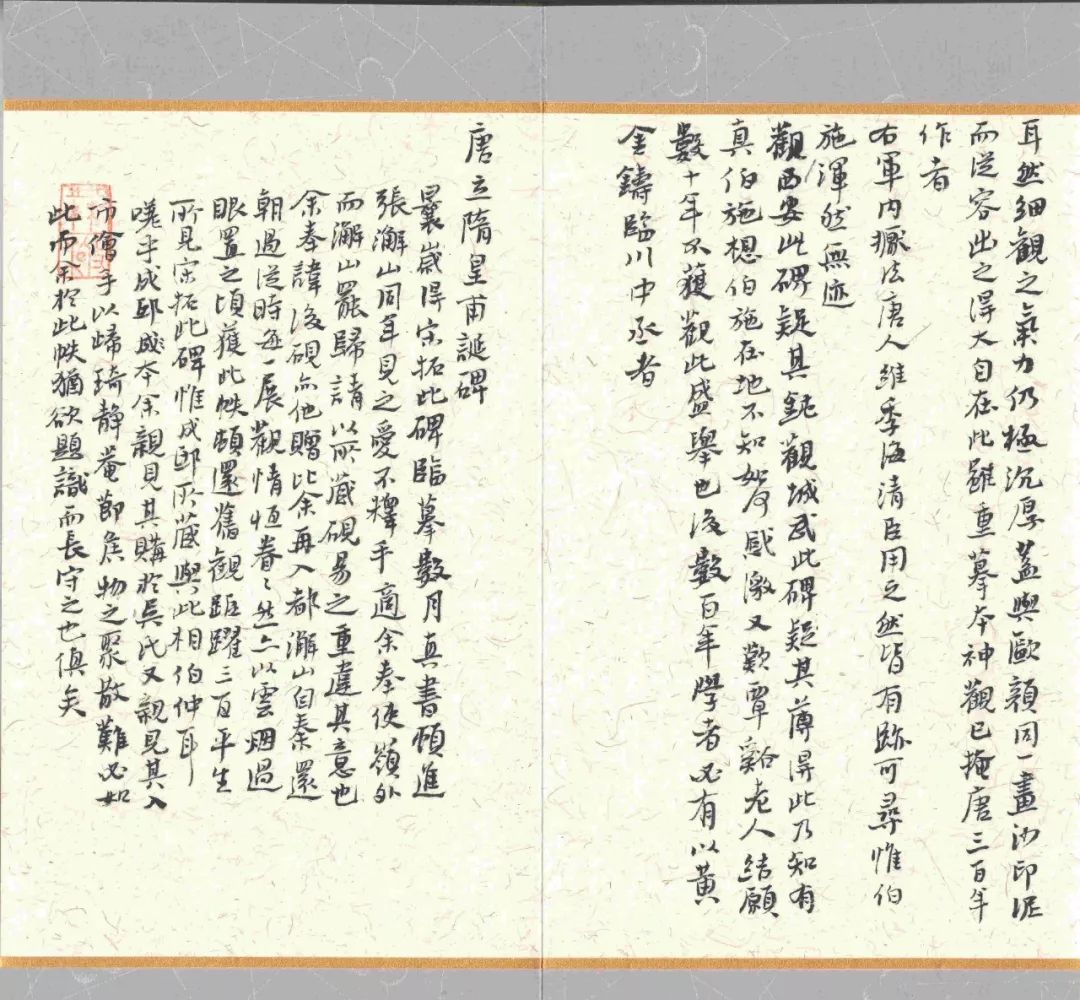 耳然細觀之氣力仍極沉厚蓋與歐顏同一畫沙印泥
而從容出之得大自在此雖重摹本神觀已掩唐三百年
作者
右軍內擫法唐人維季海清臣用之然皆有跡可尋惟伯
施渾然無迹
觀西安此碑疑其鈍觀城武此碑疑其薄得此乃知有
真伯施想伯施在地不知如何感激又歎覃谿老人結願
數十年不獲觀此盛舉也後數百年學者必有以黃
金鑄臨川中丞者
唐立隋皇甫誕碑
曩歲得宋拓此碑臨摹數月真書頓進
張澥山同年見之愛不釋手適余奉使嶺外
而澥山罷歸請以所藏硯易之重違其意也
余奉諱後硯亦他贈比余再入都澥山自秦還
朝過從時每一展觀情恆眷々然亦以雲烟過
眼置之頃獲此帙頓還舊觀距躍三百平生
所見宋拓此碑惟成邸所藏與此相伯仲耳
嗟乎成邸藏本余親見其購於吳氏又親見其入
市儈手以歸琦靜菴節使物之聚散難必如
此而余於此帙猶欲題識而長守之也傎矣